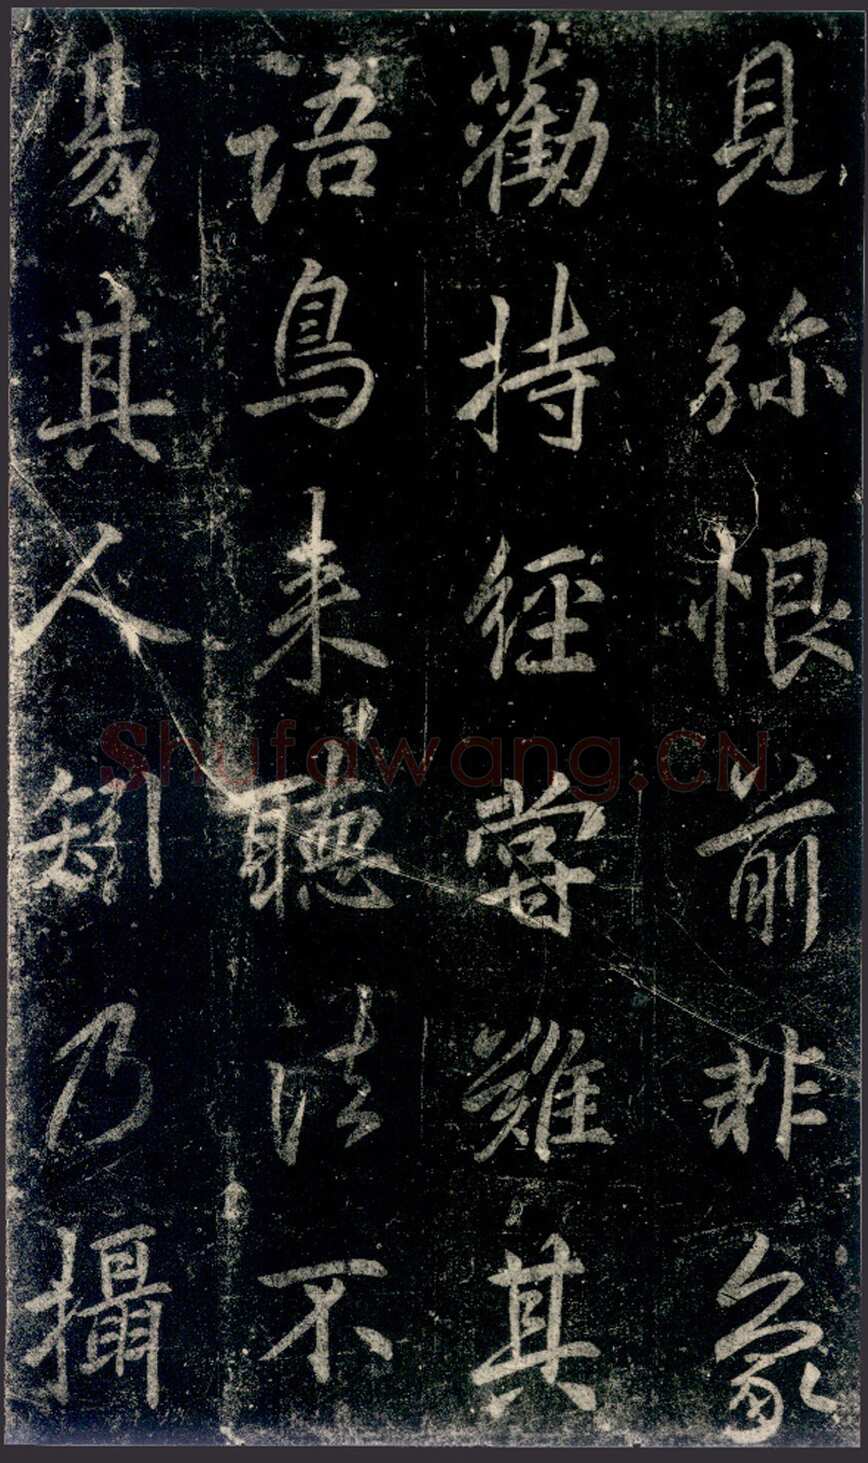 見弥恨前非象
勸持經嘗難其
語鳥来聽法不
易其人矧乃攝
Shufawang.CN